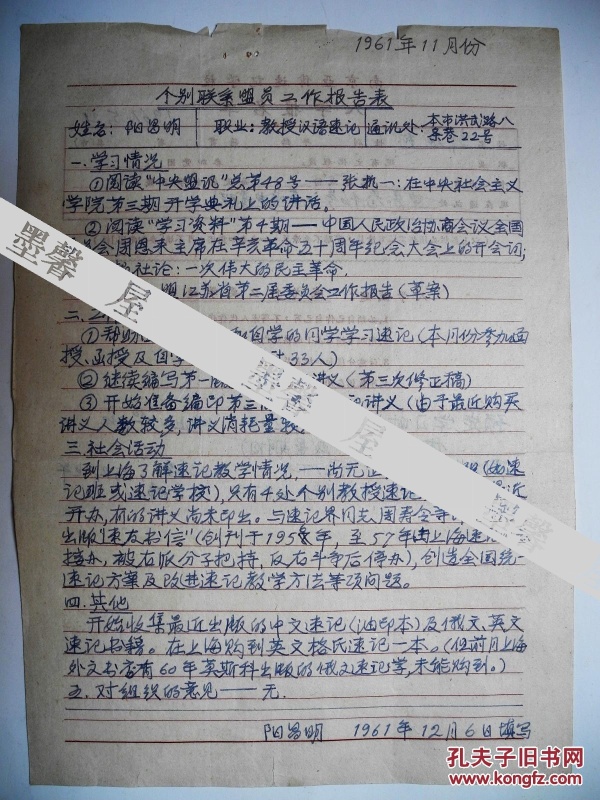 1961年11月份
个别联系盟员工作报告表
姓名：阳昌明 职业：教授汉语速记 通讯处：本市洪武路八条巷22号
一.学习情况
①阅读"中央盟讯"总第48号——张执一：在中央社会主义
学院第三期开学典礼上的讲话。
②阅读"学习资料"第4期——中国人民政治协商会议全国
会周恩来主席在辛亥革命五十周年纪念大会上的开会词；
社论：一次伟大的民主革命.
盟江苏省第二届委员会工作报告（草案）
二.
①帮助 自学的同学学习速记（本月份参加面
授、函授及自学 33人）
②继续编写第一 讲义（第三次修正稿）
③开始准备编印第三 讲义（由于最近购买
讲义人数较多，讲义消耗量较
三.社会活动
到上海了解速记教学情况，——尚无 （如速
记班或速记学校），只有4处个别教授速记 最近
开办，有的讲义尚未印出。与速记界同志周寿令等
出版"速友书信"（创刊于195 年，至57年由上海速记
接办，被右派分子把持，反右斗争后停办），创造全国统一
速记方案及改进速记教学方法等项问题。
四.其他
开始收集最近出版的中文速记（油印本）及俄文、英文
速记书籍。在上海购到英文格氏速记一本。（但前月上海
外文书店有60年莫斯科出版的俄文速记学，未能购到。）
五.对组织的意见——无.
阳昌明 1961年12月6日填写
墨馨屋
墨馨屋
墨馨屋
孔夫子旧书网
www.kongfz.com